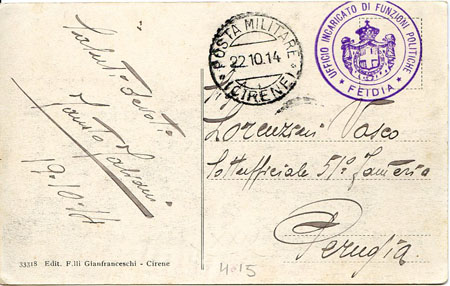 Saluti
19-10-14
* POSTA MILITARE *
22.10.14
(CIRENE)
UFFICIO INCARICATO DI FUNZIONI POLITICHE
* FEIDIA *
Lorenzoni Vasco
Sottufficiale 51° Fanteria
Perugia
33318 Edit. F.lli Gianfranceschi - Cirene
4.15